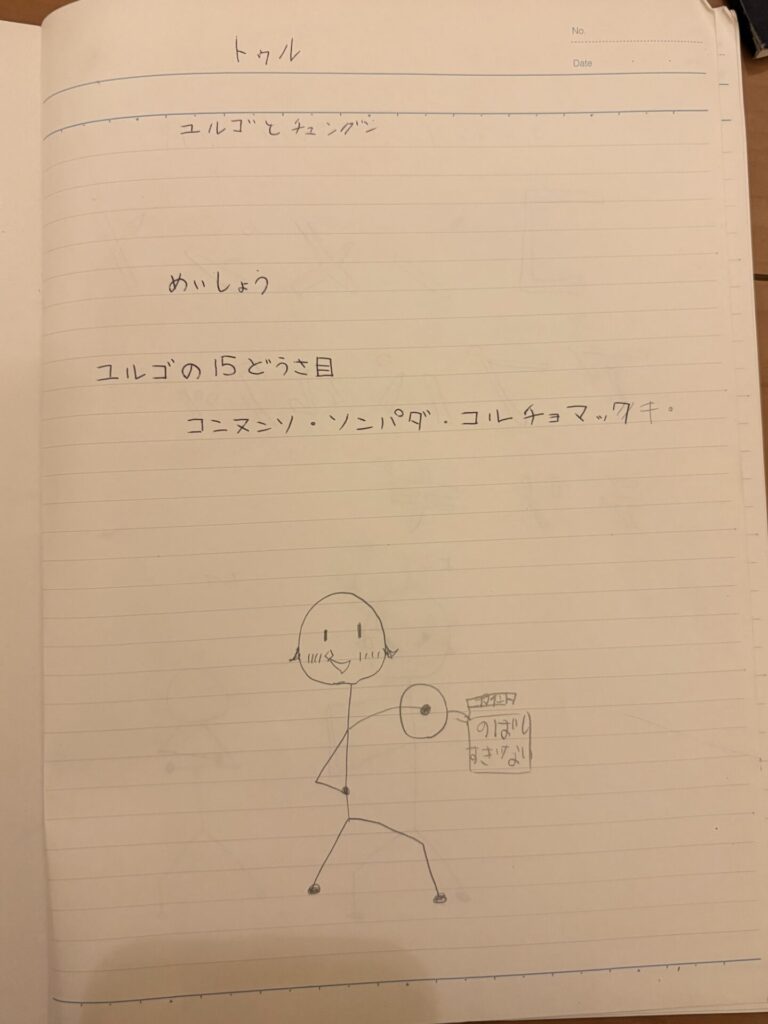 No.
Date
トゥル
ユルゴとチュングン
めいしょう
ユルゴの15どうさ目
コンヌンソ・ソンパダ・コルチョマックキ・
のばし
すぎない